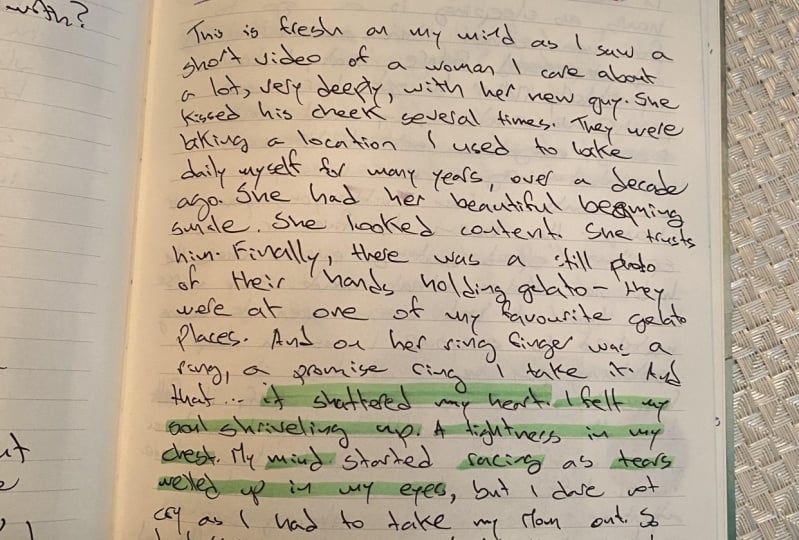 with?
This is fresh on my mind as I saw a
short video of a woman I care about
a lot, very deeply, with her new guy. She
kissed his cheek several times. They were
biking a location I used to bike
daily myself for many years, over a decade
ago. She had her beautiful beaming
smile. She looked content. She trusts
him. Finally, there was a still photo
of their hands holding gelato - they
were at one of my favourite gelato
places. And on her ring finger was a
ring, a promise ring I take it. And
that... it shattered my heart. I felt my
soul shriveling up. A tightness in my
chest. My mind started racing as tears
welled up in my eyes, but I dare not
cry as I had to take my Mom out. So